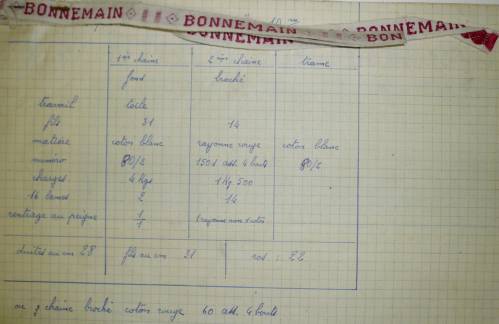 BONNEMAIN BONNEMAIN BONNEMAIN
BONNEMAIN BON
1ère chaine 2ème chaine trame
fond broché
travail toile
fils 31 14
matière coton blanc rayonne rouge coton blanc
numéro 80/2 150 ass. 4 bouts 80/2
charges 4 Kgs 1 Kg. 500
16 lames 2 14
rentrage au peigne 1/1 1 rayonne avec 1 coton
duites au cm 28 fils au cm 21 ros : 22
ou chaine broché coton rouge 60 ass. 4 bouts